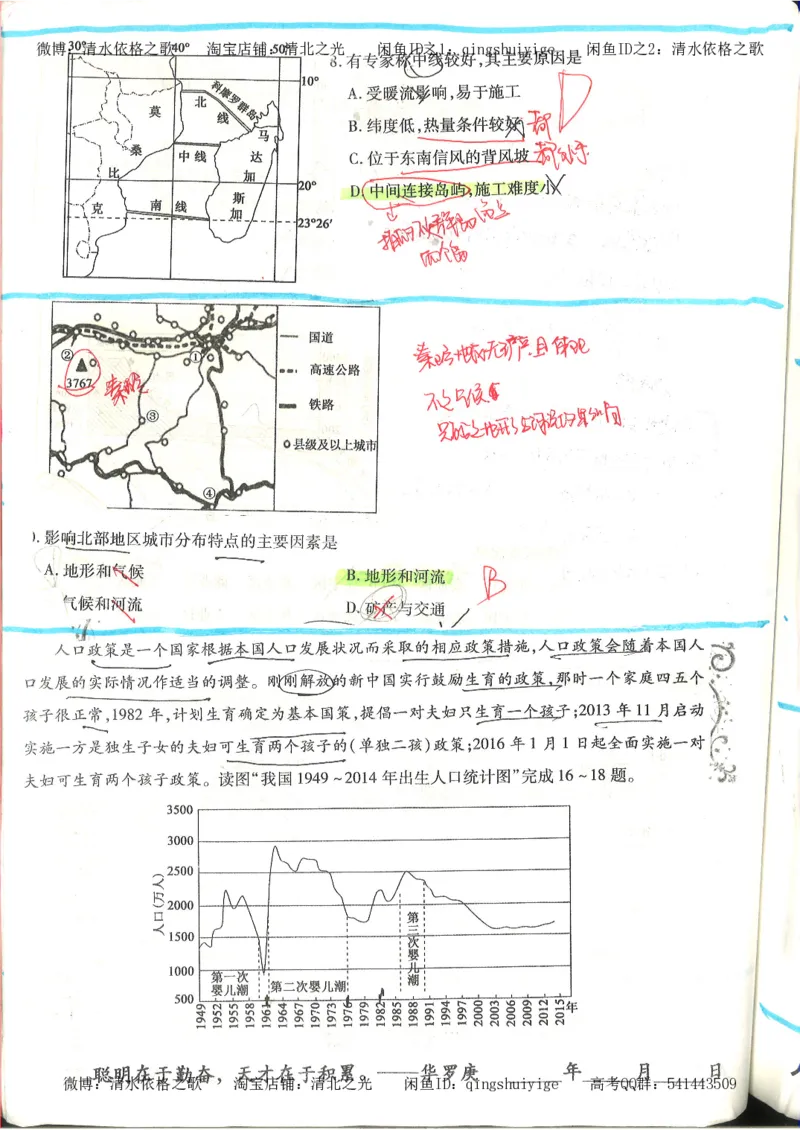 微博：清水依格之歌 淘宝店铺：清北之光 闲鱼ID之1：qingshuiyige 闲鱼ID之2：清水依格之歌
30° 40° 50°
10°
20°
23°26′
科摩罗群岛
莫
桑
比
克
北
线
中线
南 线
马
达
加
斯
加
8.有专家称中线较好,其主要原因是
A.受暖流影响,易于施工
B.纬度低,热量条件较好
C.位于东南信风的背风坡
D.中间连接岛屿,施工难度小
D
都
两个岛
①
②
3767
③
④
国道
高速公路
铁路
县级及以上城市
秦岭
).影响北部地区城市分布特点的主要因素是
A.地形和气候
B.地形和河流
气候和河流
D.矿产与交通
B
人口政策是一个国家根据本国人口发展状况而采取的相应政策措施,人口政策会随着本国人
口发展的实际情况作适当的调整。刚刚解放的新中国实行鼓励生育的政策,那时一个家庭四五个
孩子很正常,1982年,计划生育确定为基本国策,提倡一对夫妇只生育一个孩子;2013年11月启动
实施一方是独生子女的夫妇可生育两个孩子的(单独二孩)政策;2016年1月1日起全面实施一对
夫妇可生育两个孩子政策。读图“我国1949~2014年出生人口统计图”完成16~18题。
人口(万人)
3500
3000
2500
2000
1500
1000
500
第一次
婴儿潮
第二次婴儿潮
第三次婴儿潮
1949 1952 1955 1958 1961 1964 1967 1970 1973 1976 1979 1982 1985 1988 1991 1994 1997 2000 2003 2006 2009 2012 2015 年
聪明在于勤奋，天才在于积累。——华罗庚 年 月 日
微博：清水依格之歌 淘宝店铺：清北之光 闲鱼ID：qingshuiyige 高考QQ群：541443509